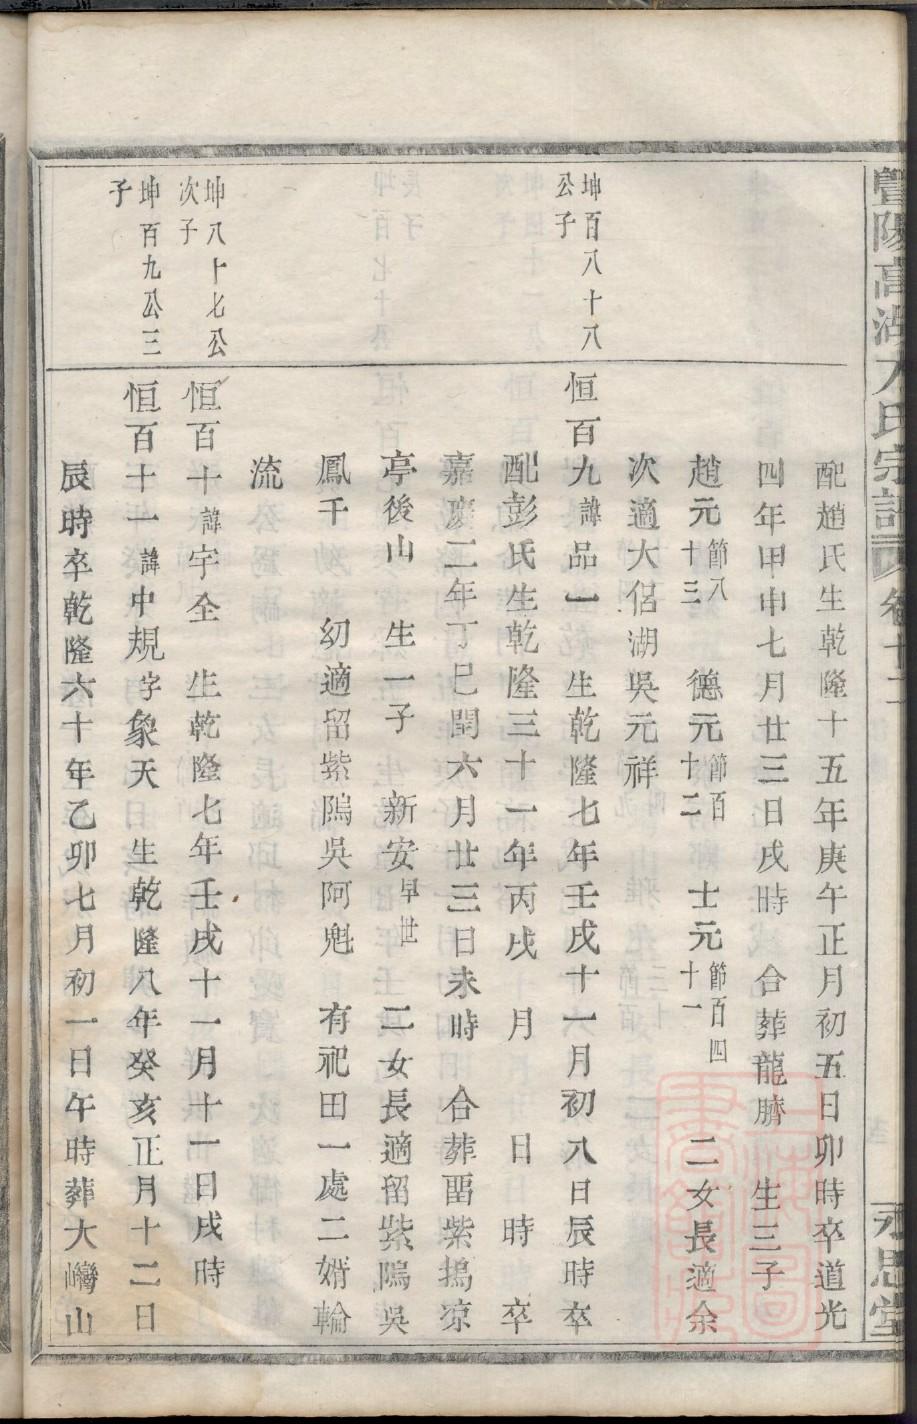 暨陽高湖方氏宗譜 卷十二 永思堂
配趙氏生乾隆十五年庚午正月初五日卯時卒道光
四年甲申七月廿三日戌時 合葬龍臍 生三子
趙元節八十三 德元節百十二 士元節百四十一 二女長適余
次適大侶湖吳元祥
坤百八十八公子
恒百九諱品一 生乾隆七年壬戌十一月初八日辰時卒
配彭氏生乾隆三十一年丙戌 月 日 時 卒
嘉慶二年丁巳閏六月廿三日未時 合葬畱紫塢凉
亭後山 生一子 新安早世 二女長適留紫隖吳
鳳千 幼適留紫隖吳阿魁 有祀田一處二婿輪
流
坤八十七公次子
恒百十諱宇全 生乾隆七年壬戌十一月十一日戌時
坤百九公三子
恒百十一諱中規字象天 生乾隆八年癸亥正月十二日
辰時卒乾隆六十年乙卯七月初一日午時葬大巒山